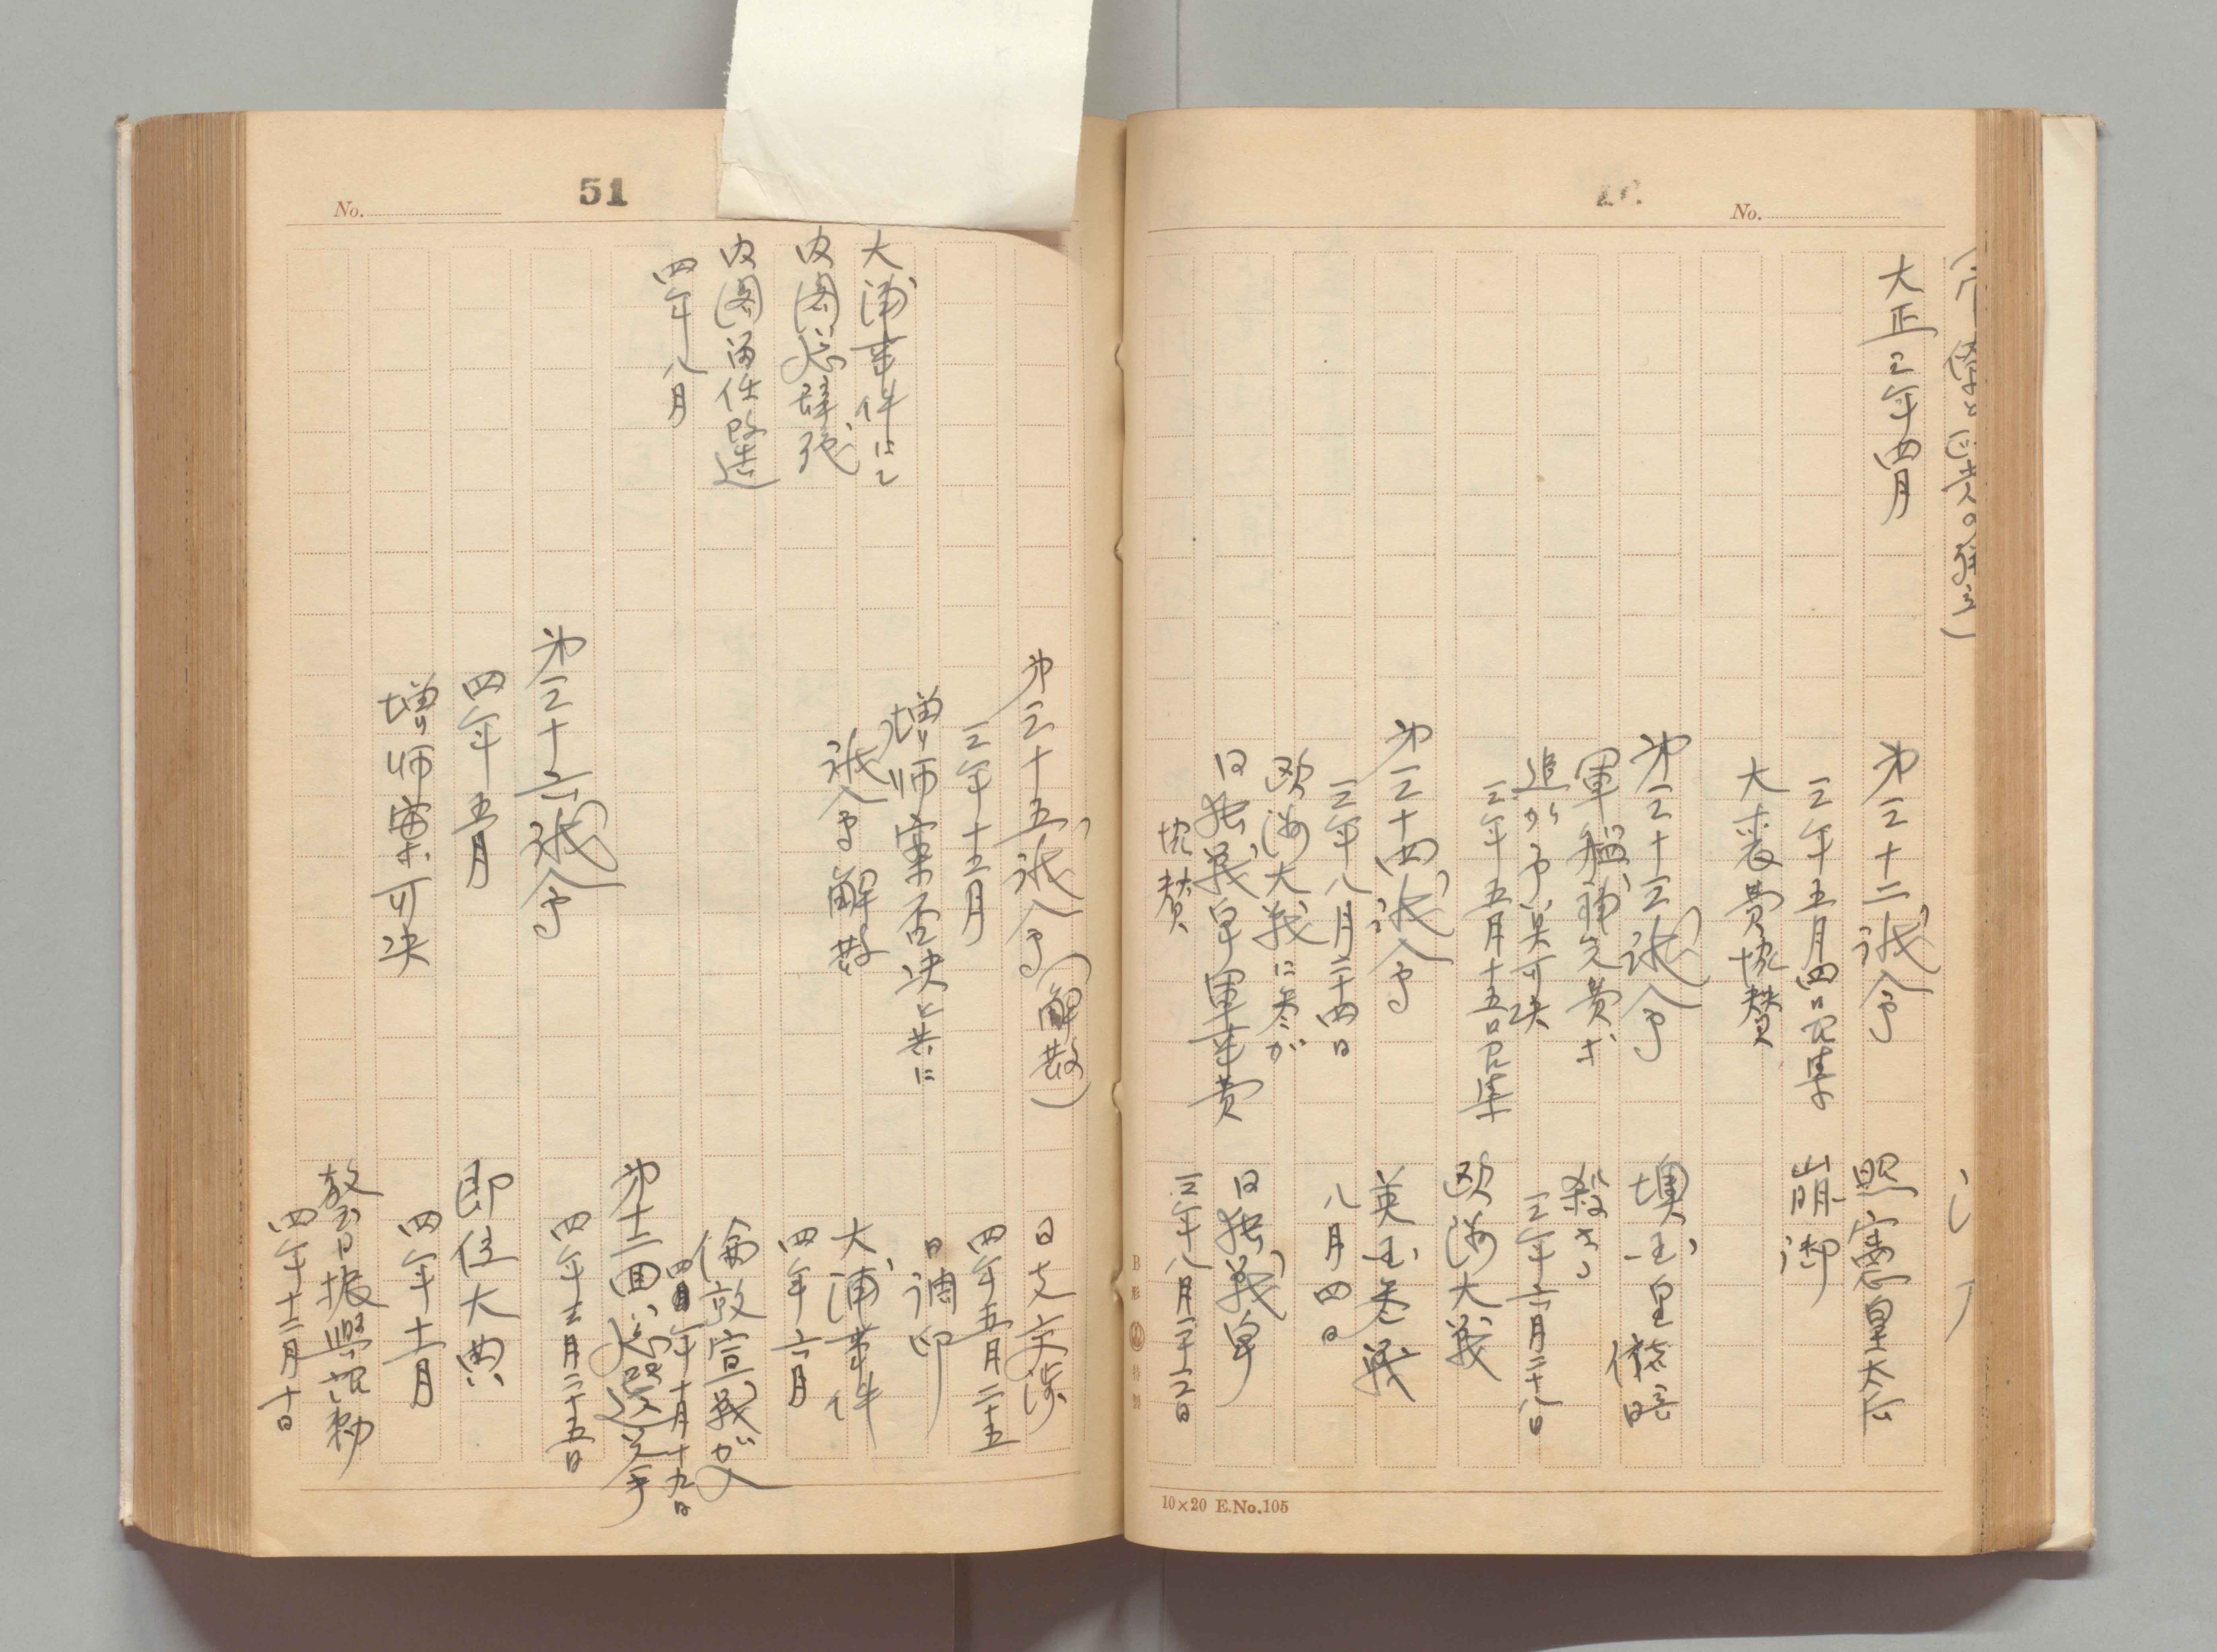 No.
大正三年四月
第三十二議会
三年五月四日召集
大喪費協賛
第三十三議会
軍艦補充費ホ
追加予算可決
三年五月十五日召集
第三十四議会
三年八月二十四日
欧洲大戦に参ガ
日独戦争軍事費
協賛
照憲皇太后
崩御
墺国皇儲暗
殺さる
三年六月二十八日
欧洲大戦
英国参戦
八月四日
日独戦争
三年八月二十三日
B形
特製
10×20 E.No.105
No.
51
大浦事件にて
内閣総辞職
内閣留任改造
四年八月
第三十五議会(解散)
三年十二月
増師案否決と共に
議会解散
第三十六議会
四年五月
増師案可決
日支交渉
四年五月二十五
日調印
大浦事件
四年六月
倫敦宣戦ガ入
四年十月十九日
第十二回総選挙
四年三月二十五日
即位大典
四年十一月
教育振興詔勅
四年十二月十日